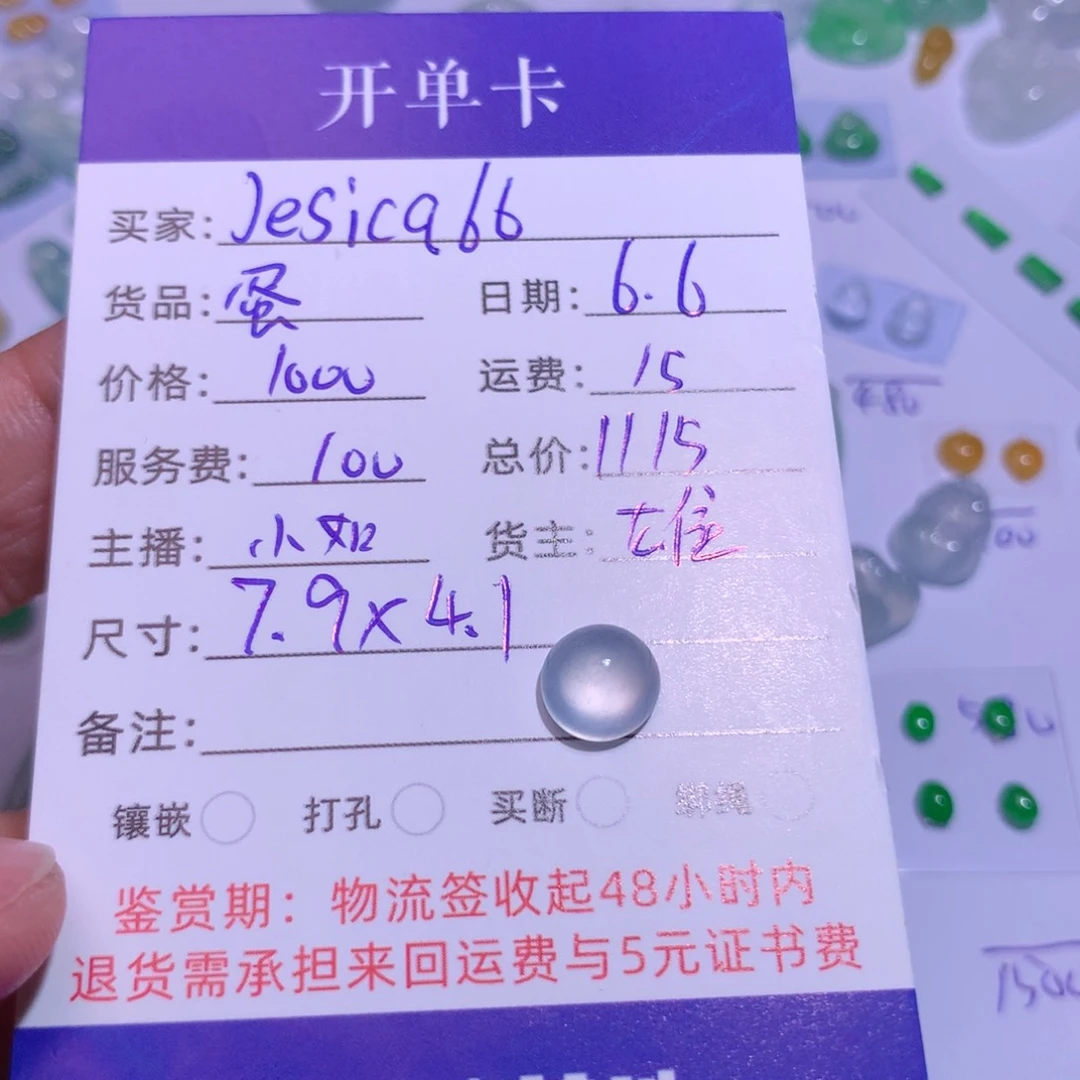 开单卡
买家: Jesica66
货品: 蛋 日期: 6.6
价格: 1000 运费: 15
服务费: 100 总价: 1115
主播: 小如 货主:
尺寸: 7.9x4.1
备注:
镶嵌 打孔 买断 编绳
鉴赏期：物流签收起48小时内
退货需承担来回运费与5元证书费
480
1500